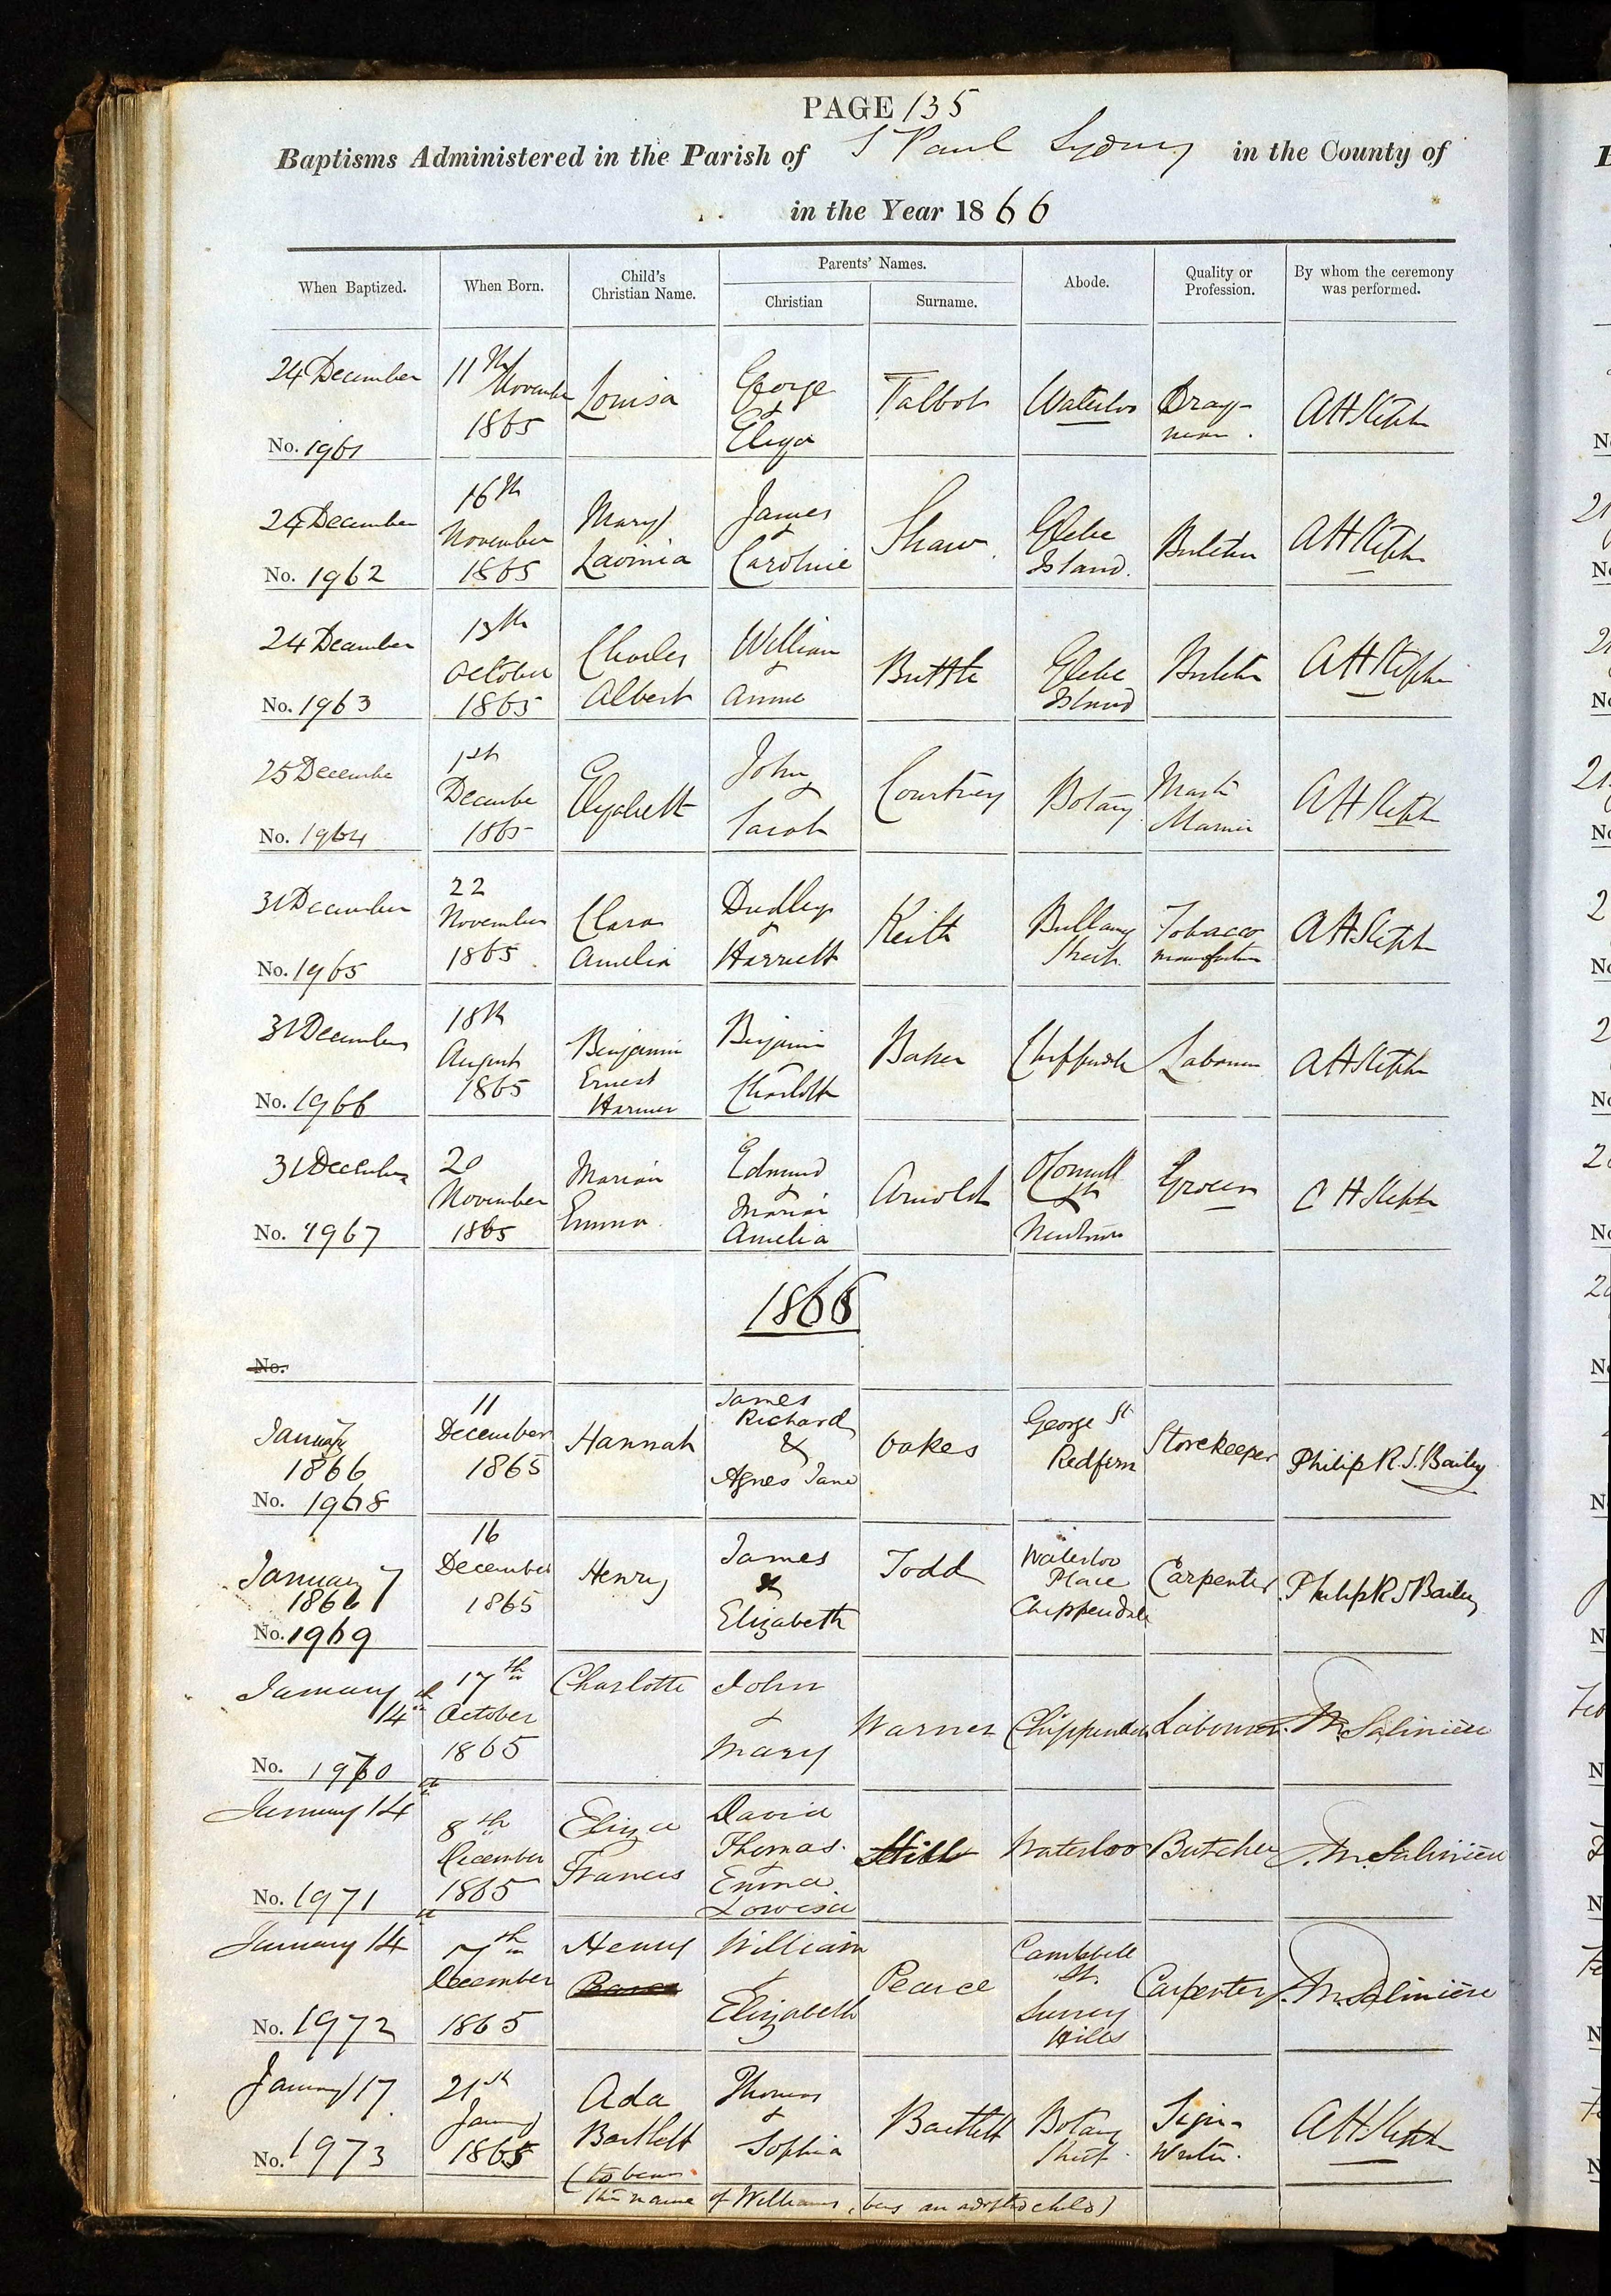 PAGE 135
Baptisms Administered in the Parish of S Paul Sydney in the County of
in the Year 1866
When Baptized. When Born. Child's Christian Name. Parents' Names. Christian Surname. Abode. Quality or Profession. By whom the ceremony was performed.
24 December
No. 1961
11th
November
1865
Louisa
George
&
Eliza
Talbot
Waterloo
Dray-
man.
AHStephen
24 December
No. 1962
16th
November
1865
Mary
Lavinia
James
&
Caroline
Shaw
Glebe
Island.
Butcher
AHStephen
24 December
No. 1963
13th
October
1865
Charles
Albert
William
&
Annie
Buttle
Glebe
Island
Butcher
AHStephen
25 December
No. 1964
1st
December
1865
Elizabeth
John
&
Sarah
Courtney
Botany
Master
Mariner
AHStephen
31 December
No. 1965
22
November
1865
Clara
Amelia
Dudley
&
Harriett
Keith
Bullanaming
Street
Tobacco
manufacturer
AHStephen
31 December
No. 1966
18th
August
1865
Benjamin
Ernest
Harmer
Benjamin
&
Charlotte
Baker
Chippendale
Labourer
AHStephen
31 December
No. 1967
20
November
1865
Marian
Emma
Edmund
&
Marian
Amelia
Arnold
OConnell
St
Newtown
Grocer
AHStephen
1866
No.
January 7
1866
No. 1968
11
December
1865
Hannah
James
Richard
&
Agnes Jane
Oakes
George St
Redfern
Storekeeper
Philip R.S. Bailey
January 7
1866
No. 1969
16
December
1865
Henry
James
&
Elizabeth
Todd
Waterloo
Place
Chippendale
Carpenter
Philip R S Bailey
January
14th
No. 1970
17th
October
1865
Charlotte
John
&
Mary
Warner
Chippendale
Labourer
M. Salinière
January 14th
No. 1971
8th
December
1865
Eliza
Frances
David
Thomas
&
Emma
Lowisa
Waterloo
Butcher
J. M. Salinière
January 14th
No. 1972
7th
December
1865
Henry
William
&
Elizabeth
Pearce
Cambbell
St.
Surrey
Hills
Carpenter
J. M. Salinière
January 17
No. 1973
21st
Jany
1865
Ada
Bartlett
Thomas
&
Sophia
Bartlett
Botany
Street
Sign-
Writer.
AHStephen
(to bear
the name of Williams, being an adopted child)